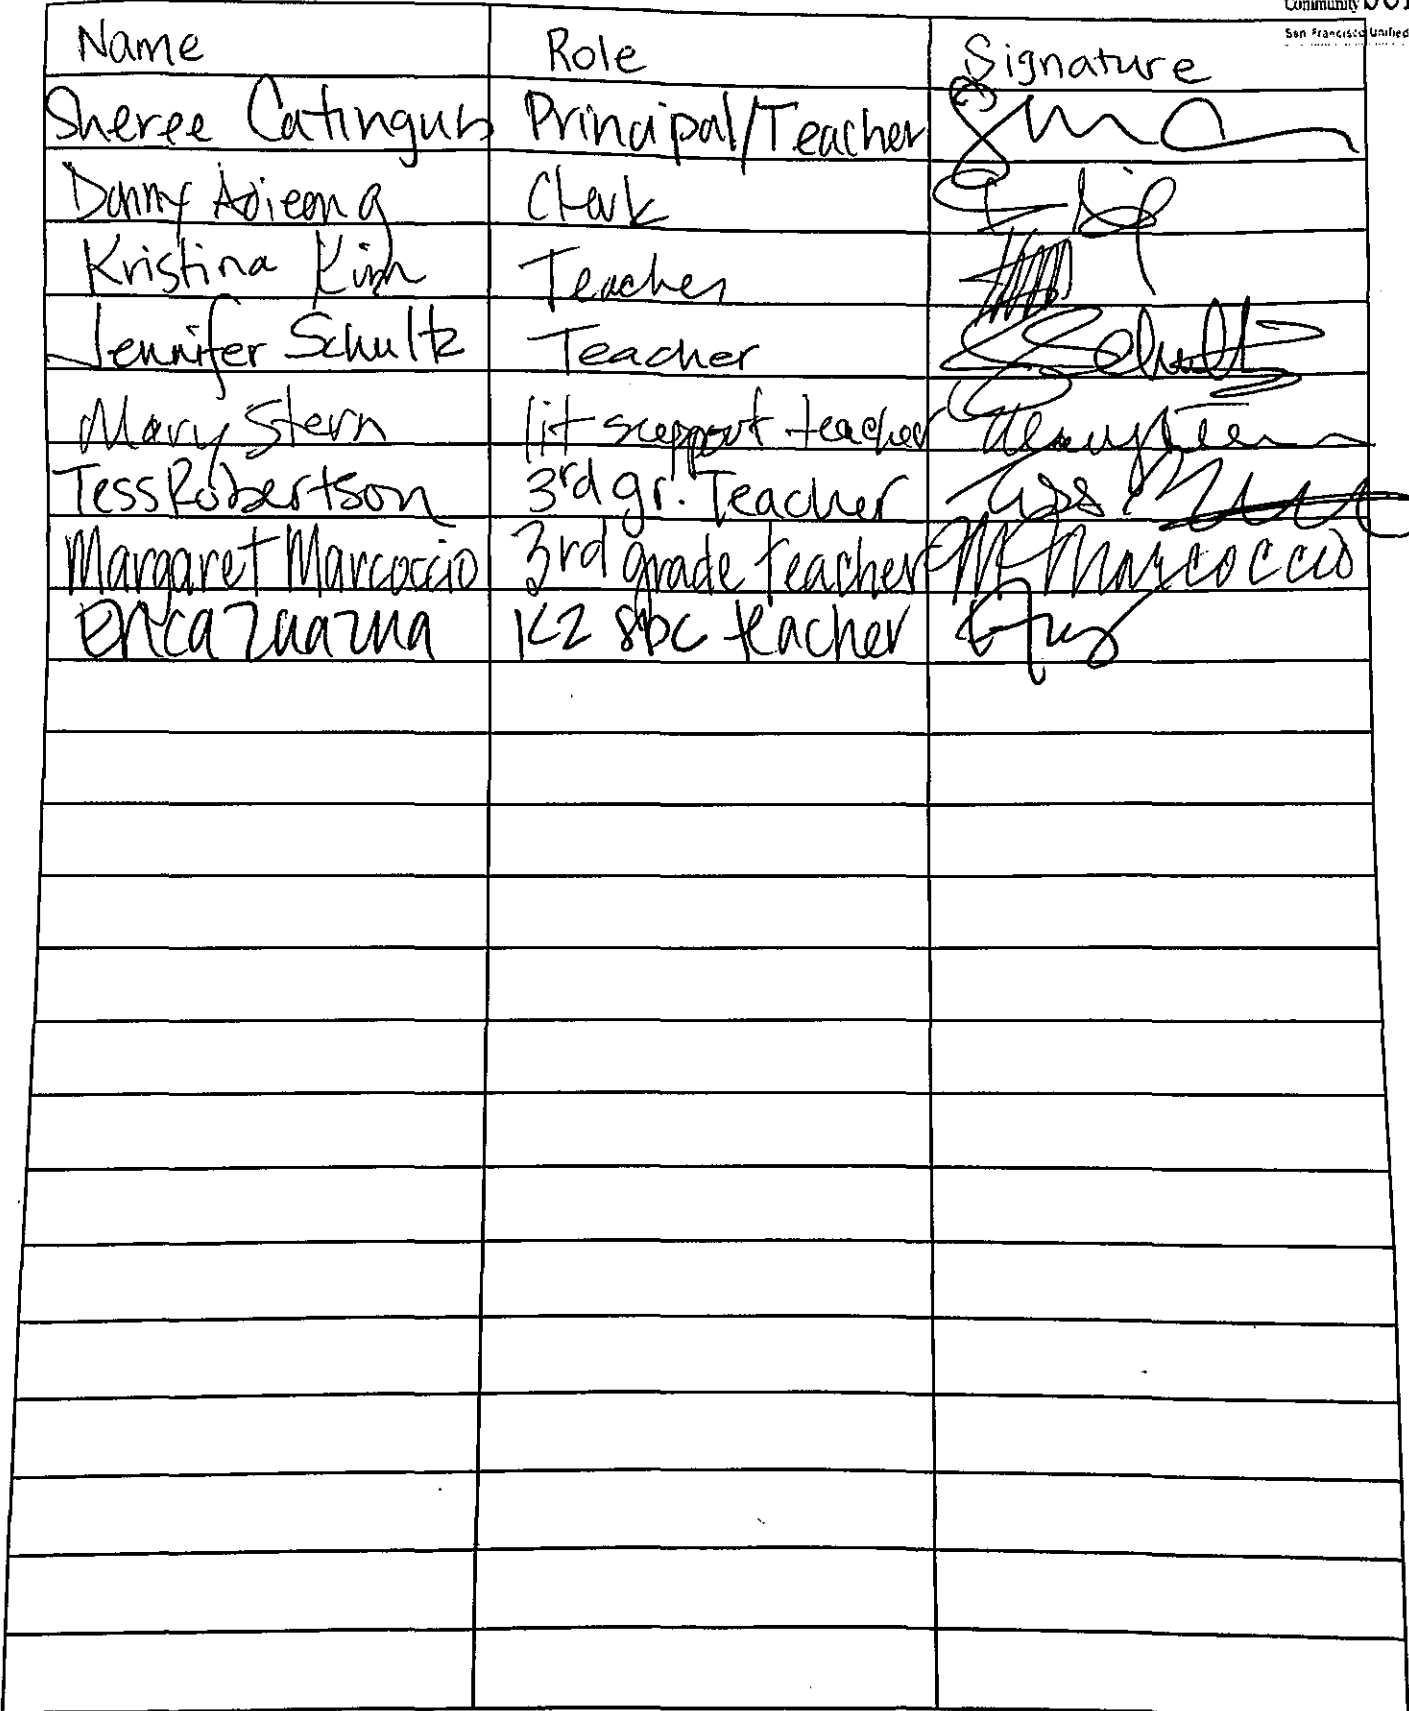 Community
San Francisco Unified
Name Role Signature
Sheree Catingub Principal/Teacher
Danny Clerk
Kristina Kim Teacher
Jennifer Schultz Teacher Schultz
Mary Stern lit support teacher Mary Stern
Tess Robertson 3rd gr. Teacher Tess
Margaret Marcoccio 3rd grade teacher M Marcoccio
Erica Zuazua K2 sbc teacher